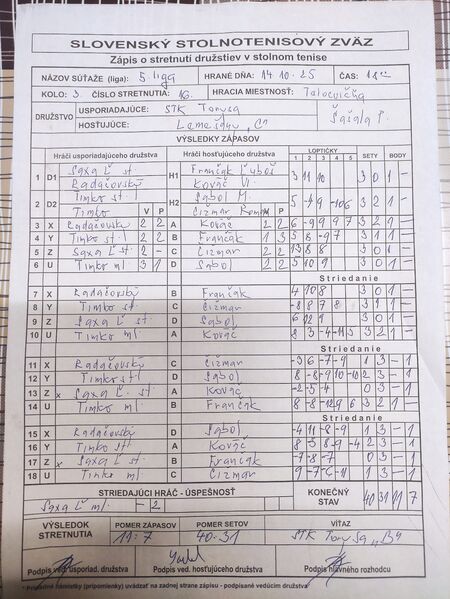 SLOVENSKÝ STOLNOTENISOVÝ ZVÄZ
Zápis o stretnutí družstiev v stolnom tenise
NÁZOV SÚŤAŽE (liga): 5 liga HRANÉ DŇA: 14 10. 25 ČAS:
KOLO: 3 ČÍSLO STRETNUTIA: 16. HRACIA MIESTNOSŤ:
DRUŽSTVO USPORIADAJÚCE: STK Tonysa
HOSŤUJÚCE:
VÝSLEDKY ZÁPASOV
Hráči usporiadajúceho družstva Hráči hosťujúceho družstva LOPTIČKY 1 2 3 4 5 SETY BODY
1 D1 Saxa Ľ st H1 Frančák Ľuboš 3 11 10 3 0 1 -
Radačovský Kováč Vl.
2 D2 Timko st H2 Sabol M. 3 2 1 -
Timko V P Čižmar Roman V P
3 X Radačovský 2 2 A Kováč 2 2 6 -9 9 9 7 3 2 1 -
4 Y Timko st 2 2 B Frančák 1 3 3 1 1 -
5 Z Saxa Ľ st 2 - C Čižmar 2 2 13 8 8 3 0 1 -
6 U Timko ml 3 1 D Sabol 2 2 5 10 9 3 0 1 -
Striedanie
7 X Radačovský B Frančák 4 10 8 3 0 1 -
8 Y Timko st C Čižmar -8 8 7 8 3 1 1
9 Z Saxa Ľ st. D Sabol 6 12 9 3 0 1
10 U Timko ml. A Kováč 8 3 -4 -11 5 3 2 1
Striedanie
11 X Radačovský C Čižmar -3 6 -7 -9 1 3 - 1
12 Y Timko st D Sabol 8 -8 -9 10 -10 2 3 - 1
13 Z x Saxa Ľ st. A Kováč -2 -5 -4 0 3 - 1
14 U Timko ml. B Frančák 8 -8 -12 9 6 3 2 1
Striedanie
15 X Radačovský D Sabol -4 11 -8 -9 1 3 - 1
16 Y Timko st A Kováč 8 5 -8 -9 -4 2 3 - 1
17 Z x Saxa Ľ st. B Frančák -7 -8 -7 0 3 - 1
18 U Timko ml C Čižmar 1 3 - 1
STRIEDAJÚCI HRÁČ - ÚSPEŠNOSŤ KONEČNÝ STAV 40 31 11 7
Saxa Ľ ml. - 2
VÝSLEDOK STRETNUTIA POMER ZÁPASOV POMER SETOV VÍŤAZ
11:7 40:31 STK Tonysa "B"
Podpis ved. usporiad. družstva Podpis ved. hosťujúceho družstva Podpis hlavného rozhodcu
Prípadné námietky (pripomienky) uvádzať na zadnej strane zápisu - podpísané vedúcim družstva